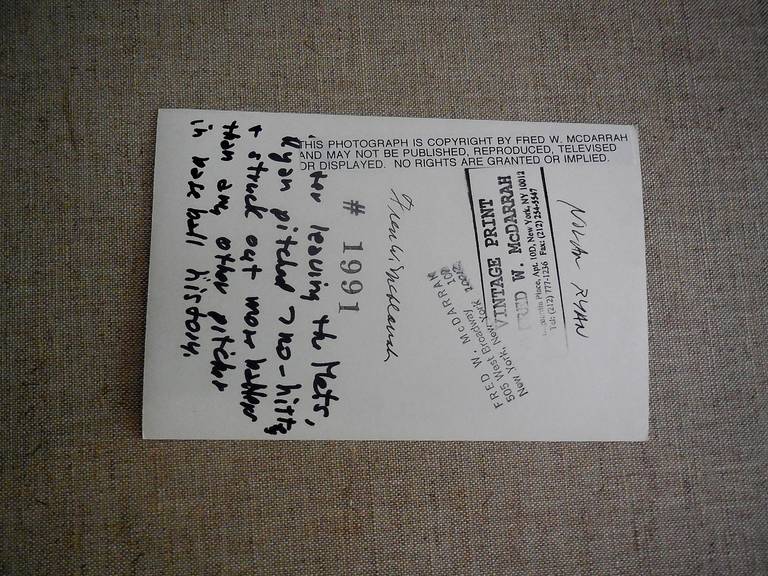 THIS PHOTOGRAPH IS COPYRIGHT BY FRED W. MCDARRAH
AND MAY NOT BE PUBLISHED, REPRODUCED, TELEVISED
OR DISPLAYED. NO RIGHTS ARE GRANTED OR IMPLIED.
NOLAN RYAN
VINTAGE PRINT
FRED W. McDARRAH
Place, Apt. 10D, New York, NY 10012
Tel: (212) 777-1236 Fax: (212) 254-5547
FRED W. McDARRAH
505 West Broadway
New York, New York
Fred W. McDarrah
# 1991
leaving the Mets,
Ryan pitched 7 no-hitters
+ struck out more batters
than any other pitcher
in base ball history.